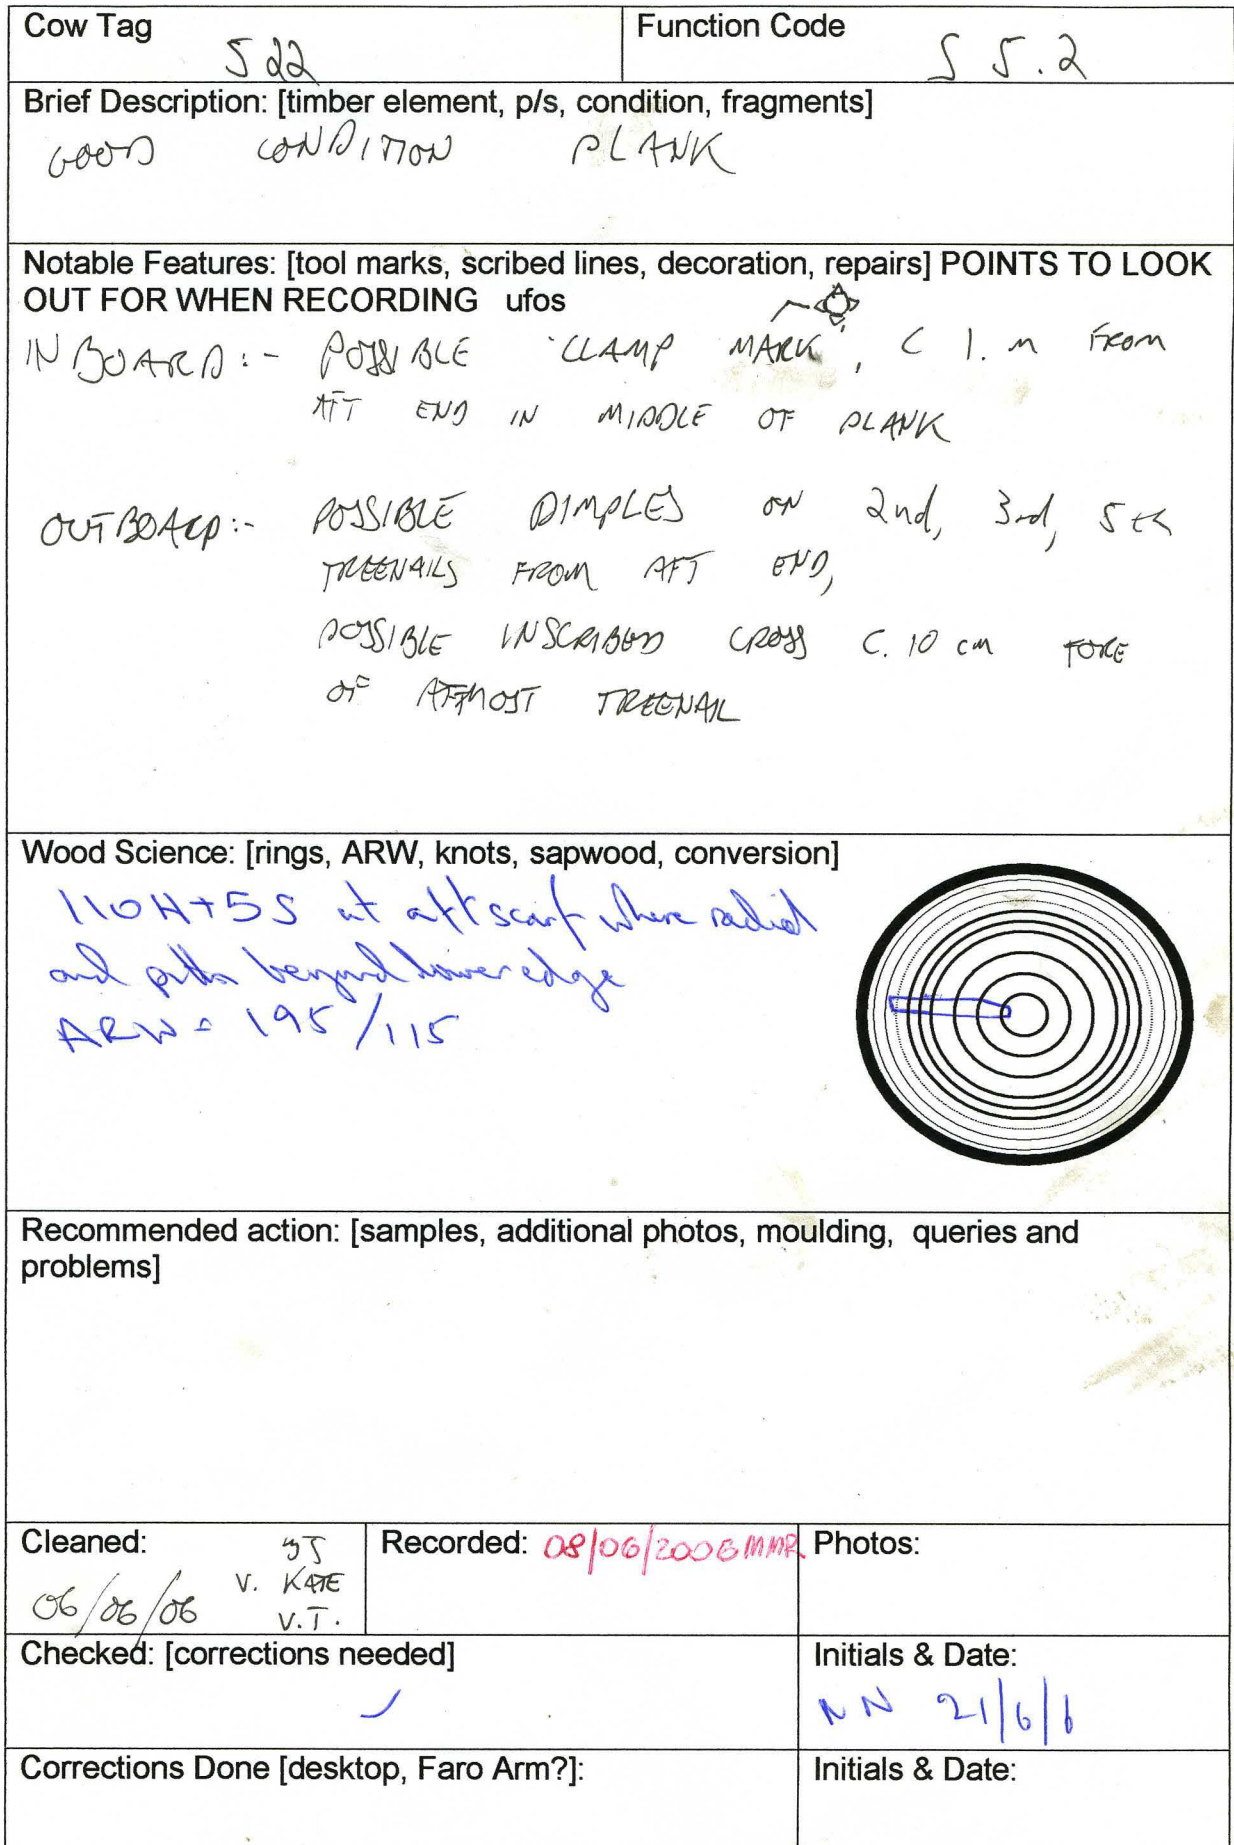 Cow Tag
522
Function Code
S 5.2
Brief Description: [timber element, p/s, condition, fragments]
GOOD CONDITION PLANK
Notable Features: [tool marks, scribed lines, decoration, repairs] POINTS TO LOOK
OUT FOR WHEN RECORDING ufos
INBOARD:- POSSIBLE 'CLAMP MARK', C 1. m FROM
AFT END IN MIDDLE OF PLANK
OUTBOARD:- POSSIBLE DIMPLES ON 2nd, 3rd, 5th
TREENAILS FROM AFT END,
POSSIBLE INSCRIBED CROSS C. 10 cm FORE
OF AFTMOST TREENAIL
Wood Science: [rings, ARW, knots, sapwood, conversion]
110H+5S at aft scarf where radial
and pith beyond lower edge
ARW = 195/115
Recommended action: [samples, additional photos, moulding, queries and
problems]
Cleaned:
V. KATE
06/06/06 V.T.
Recorded: 08/06/2006 MMR
Photos:
Checked: [corrections needed]
Initials & Date:
NN 21/6/6
Corrections Done [desktop, Faro Arm?]:
Initials & Date: